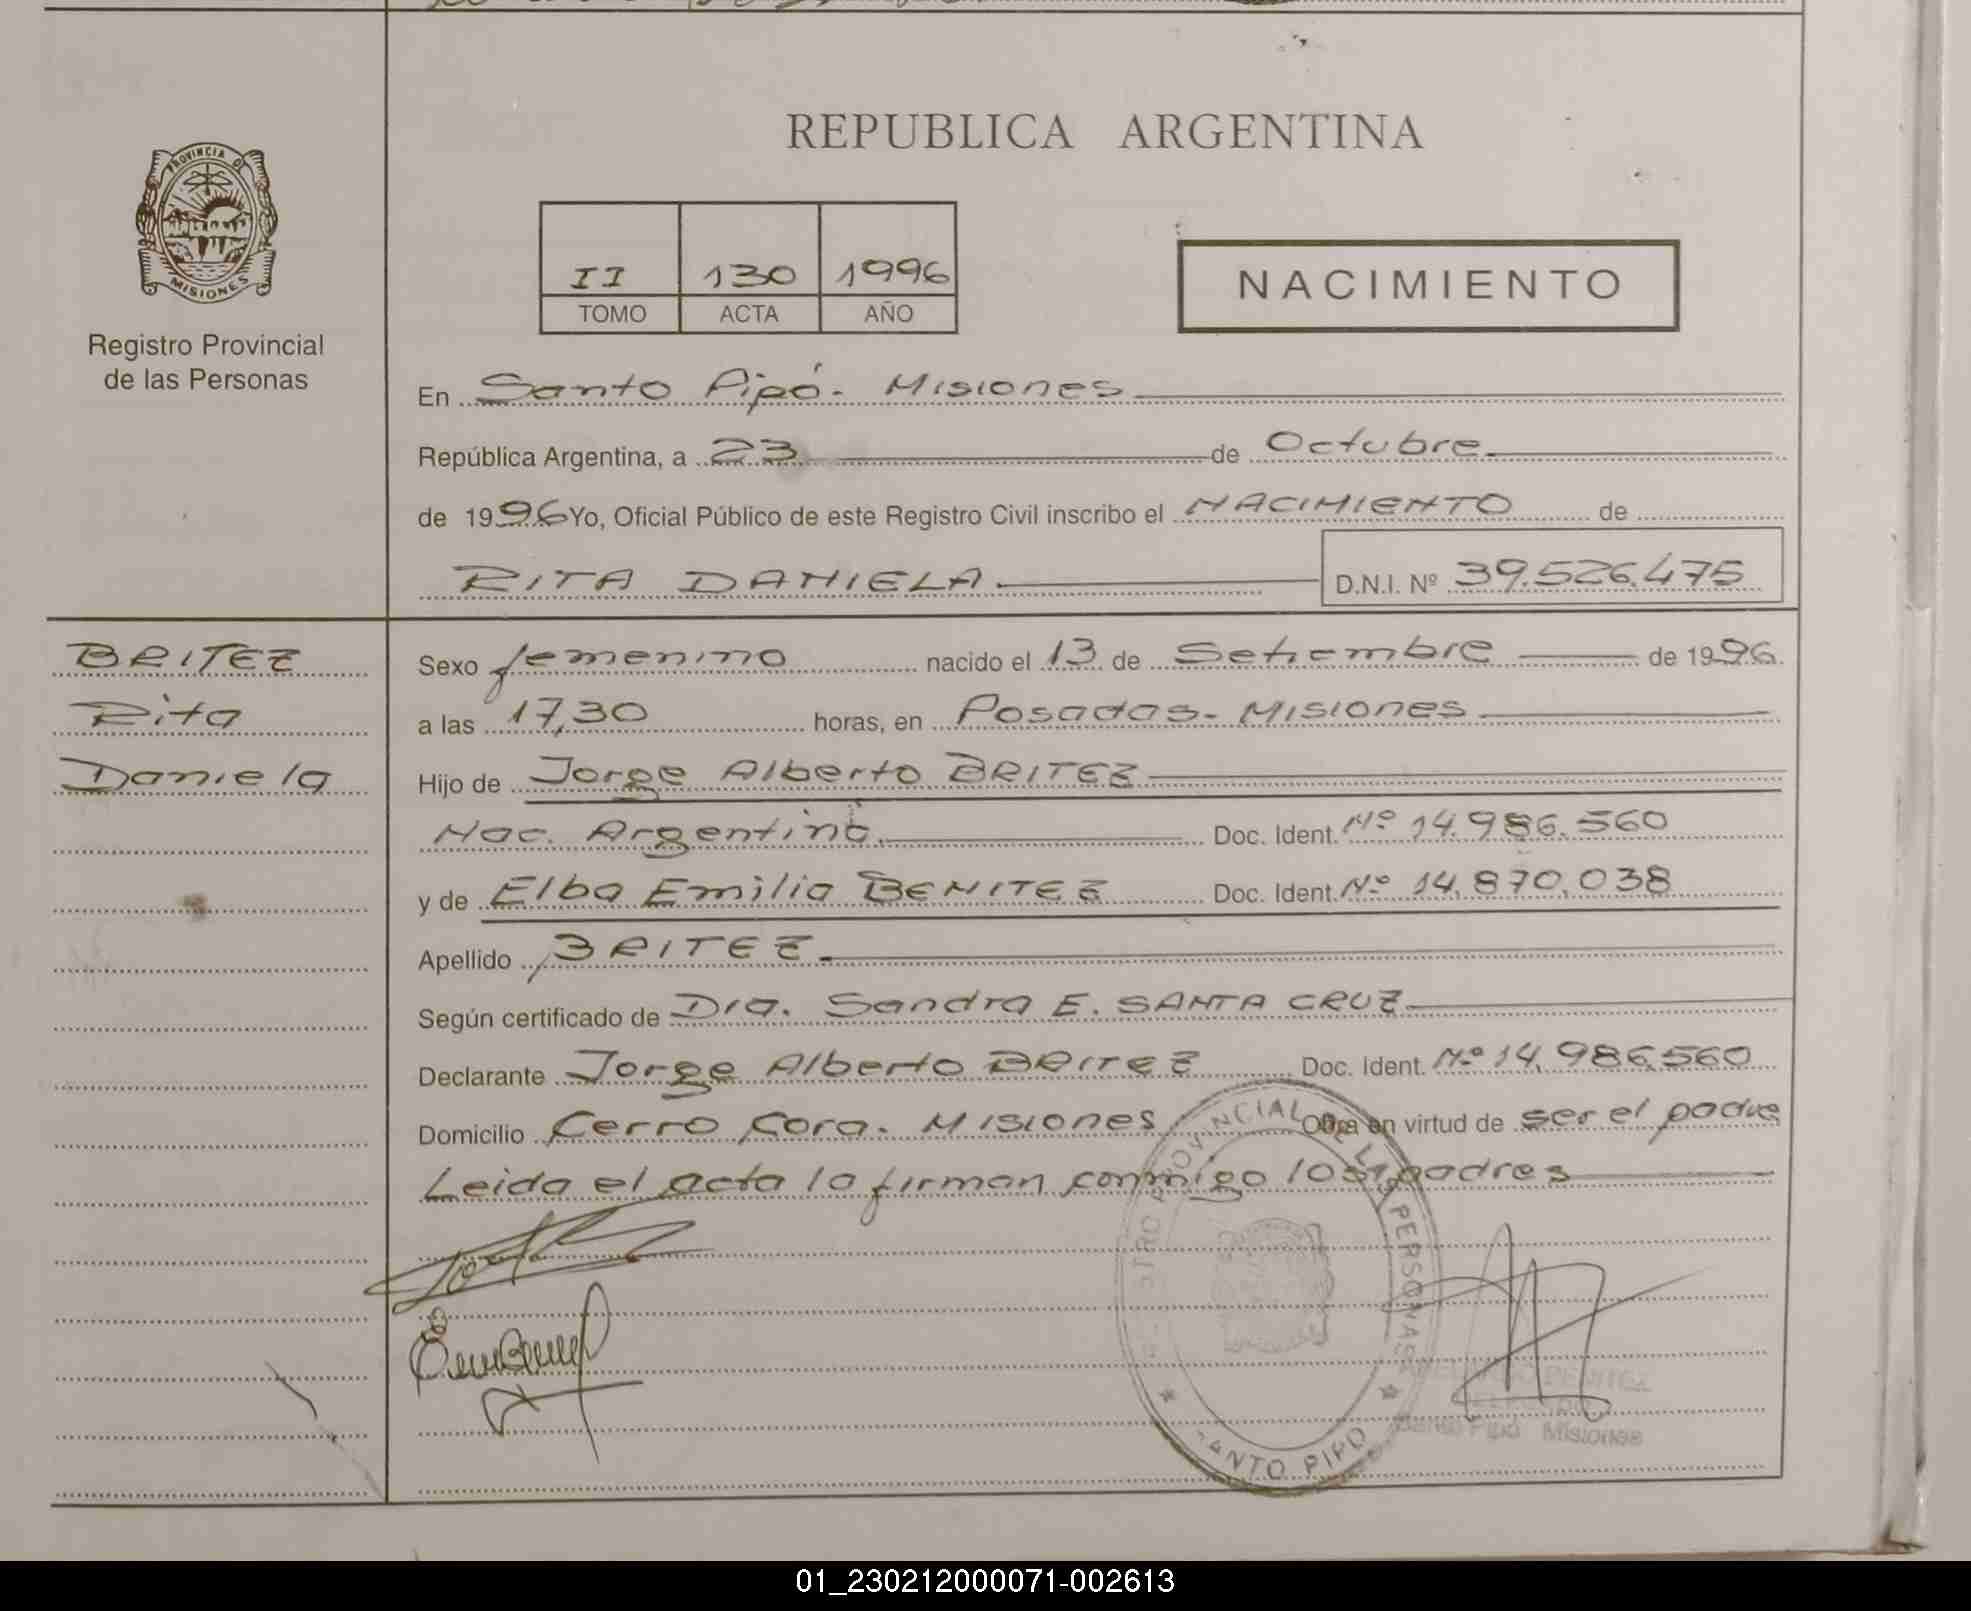 REPUBLICA ARGENTINA
PROVINCIA DE
MISIONES
Registro Provincial
de las Personas
II 130 1996
TOMO ACTA AÑO
NACIMIENTO
En Santo Pipó - Misiones
República Argentina, a 23 de Octubre
de 1996 Yo, Oficial Público de este Registro Civil inscribo el NACIMIENTO de
RITA DANIELA. D.N.I. Nº 39.526.475
BRITEZ
Rita
Daniela
Sexo femenino nacido el 13 de Setiembre de 1996.
a las 17,30 horas, en Posadas - Misiones
Hijo de Jorge Alberto BRITEZ
Nac. Argentino. Doc. Ident. Nº 14.986.560
y de Elba Emilia BENITEZ Doc. Ident. Nº 14.870.038
Apellido BRITEZ.
Según certificado de Dra. Sandra E. SANTA CRUZ
Declarante Jorge Alberto BRITEZ Doc. Ident. Nº 14.986.560
Domicilio Cerro Cora. Misiones Obra en virtud de ser el padre
Leida el acta la firman conmigo los padres
PROVINCIAL DE LAS PERSONAS
SANTO PIPO
BENITEZ
Santo Pipó Misiones
01_230212000071-002613